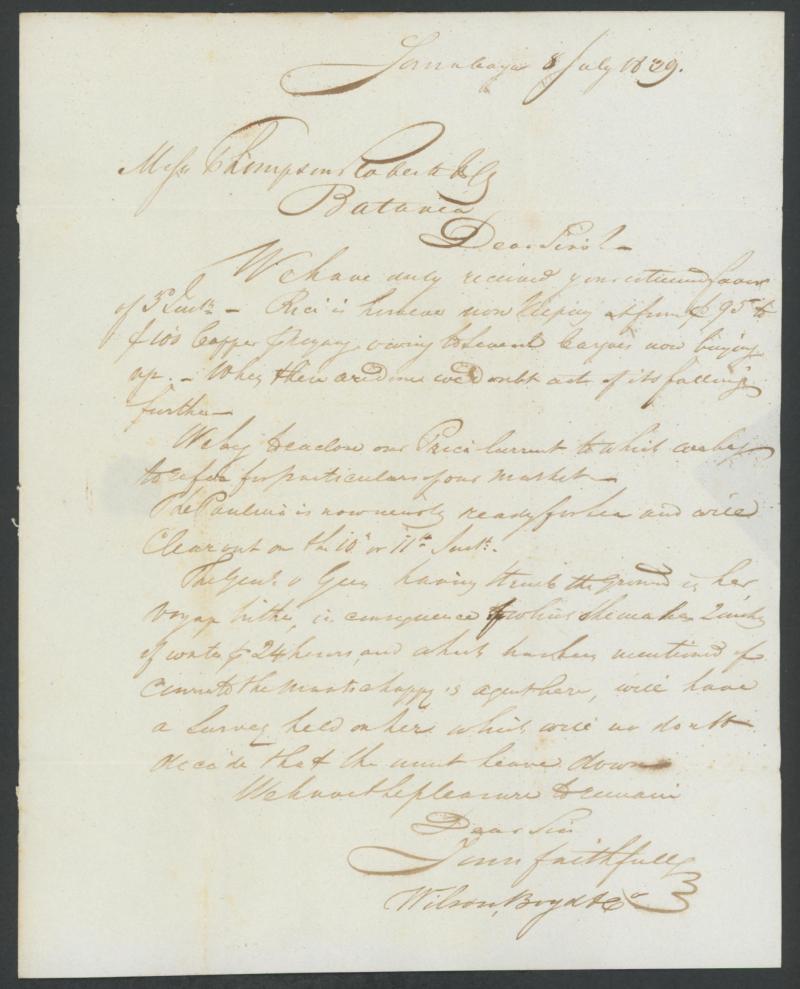 Sourabaya 8 July 1839.
Messrs Thompson Roberts & Co
Batavia
Dear Sirs!—
We have duly received your esteemed favor
of 3d Inst. — Rice is however now keeping at from f 95 to
f 100 Copper p Koyang, owing to several Cargoes now buying
up. — When these are done we doubt not of its falling
further —
We beg to enclose our Price Current to which we beg
to refer for particulars of our market —
The Paulina is now nearly ready for sea and will
Clear out on the 10th or 11th Inst.
The having struck the ground in her
voyage hither, in consequence of which she makes 2 inches
of water p 24 hours, and which has been mentioned of
Course to the agent here, will have
a Survey held on her which will no doubt
decide that she must heave down
We have the pleasure to remain
Dear Sirs
Yours faithfully
Wilson, Boyd & Co